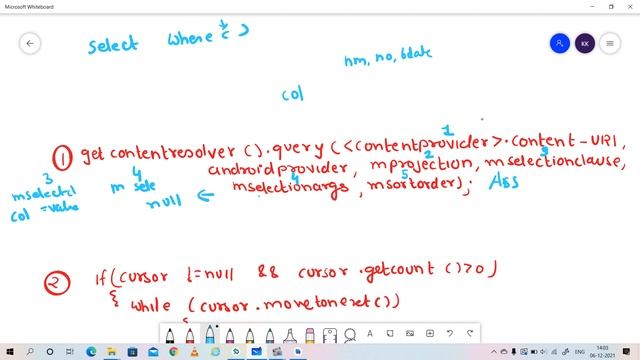 Microsoft Whiteboard
KK
select where c >
nm, no, bdate
col
1
① getcontentresolver().query(<contentprovider>.content-URI,
2 3
androidprovider, mprojection, mselectionclause,
3 4 4 5
mselectionargs, msortorder); Ass
m sele
col = value
null ←
② if(cursor != null && cursor.getcount()>0)
{ while (cursor.movetonext())
{
A
ENG
14:03
06-12-2021